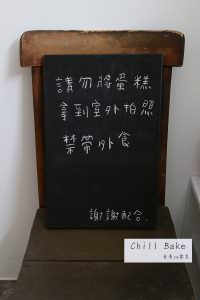 請勿將蛋糕
拿到室外拍照
禁帶外食
謝謝配合.
Chill Bake